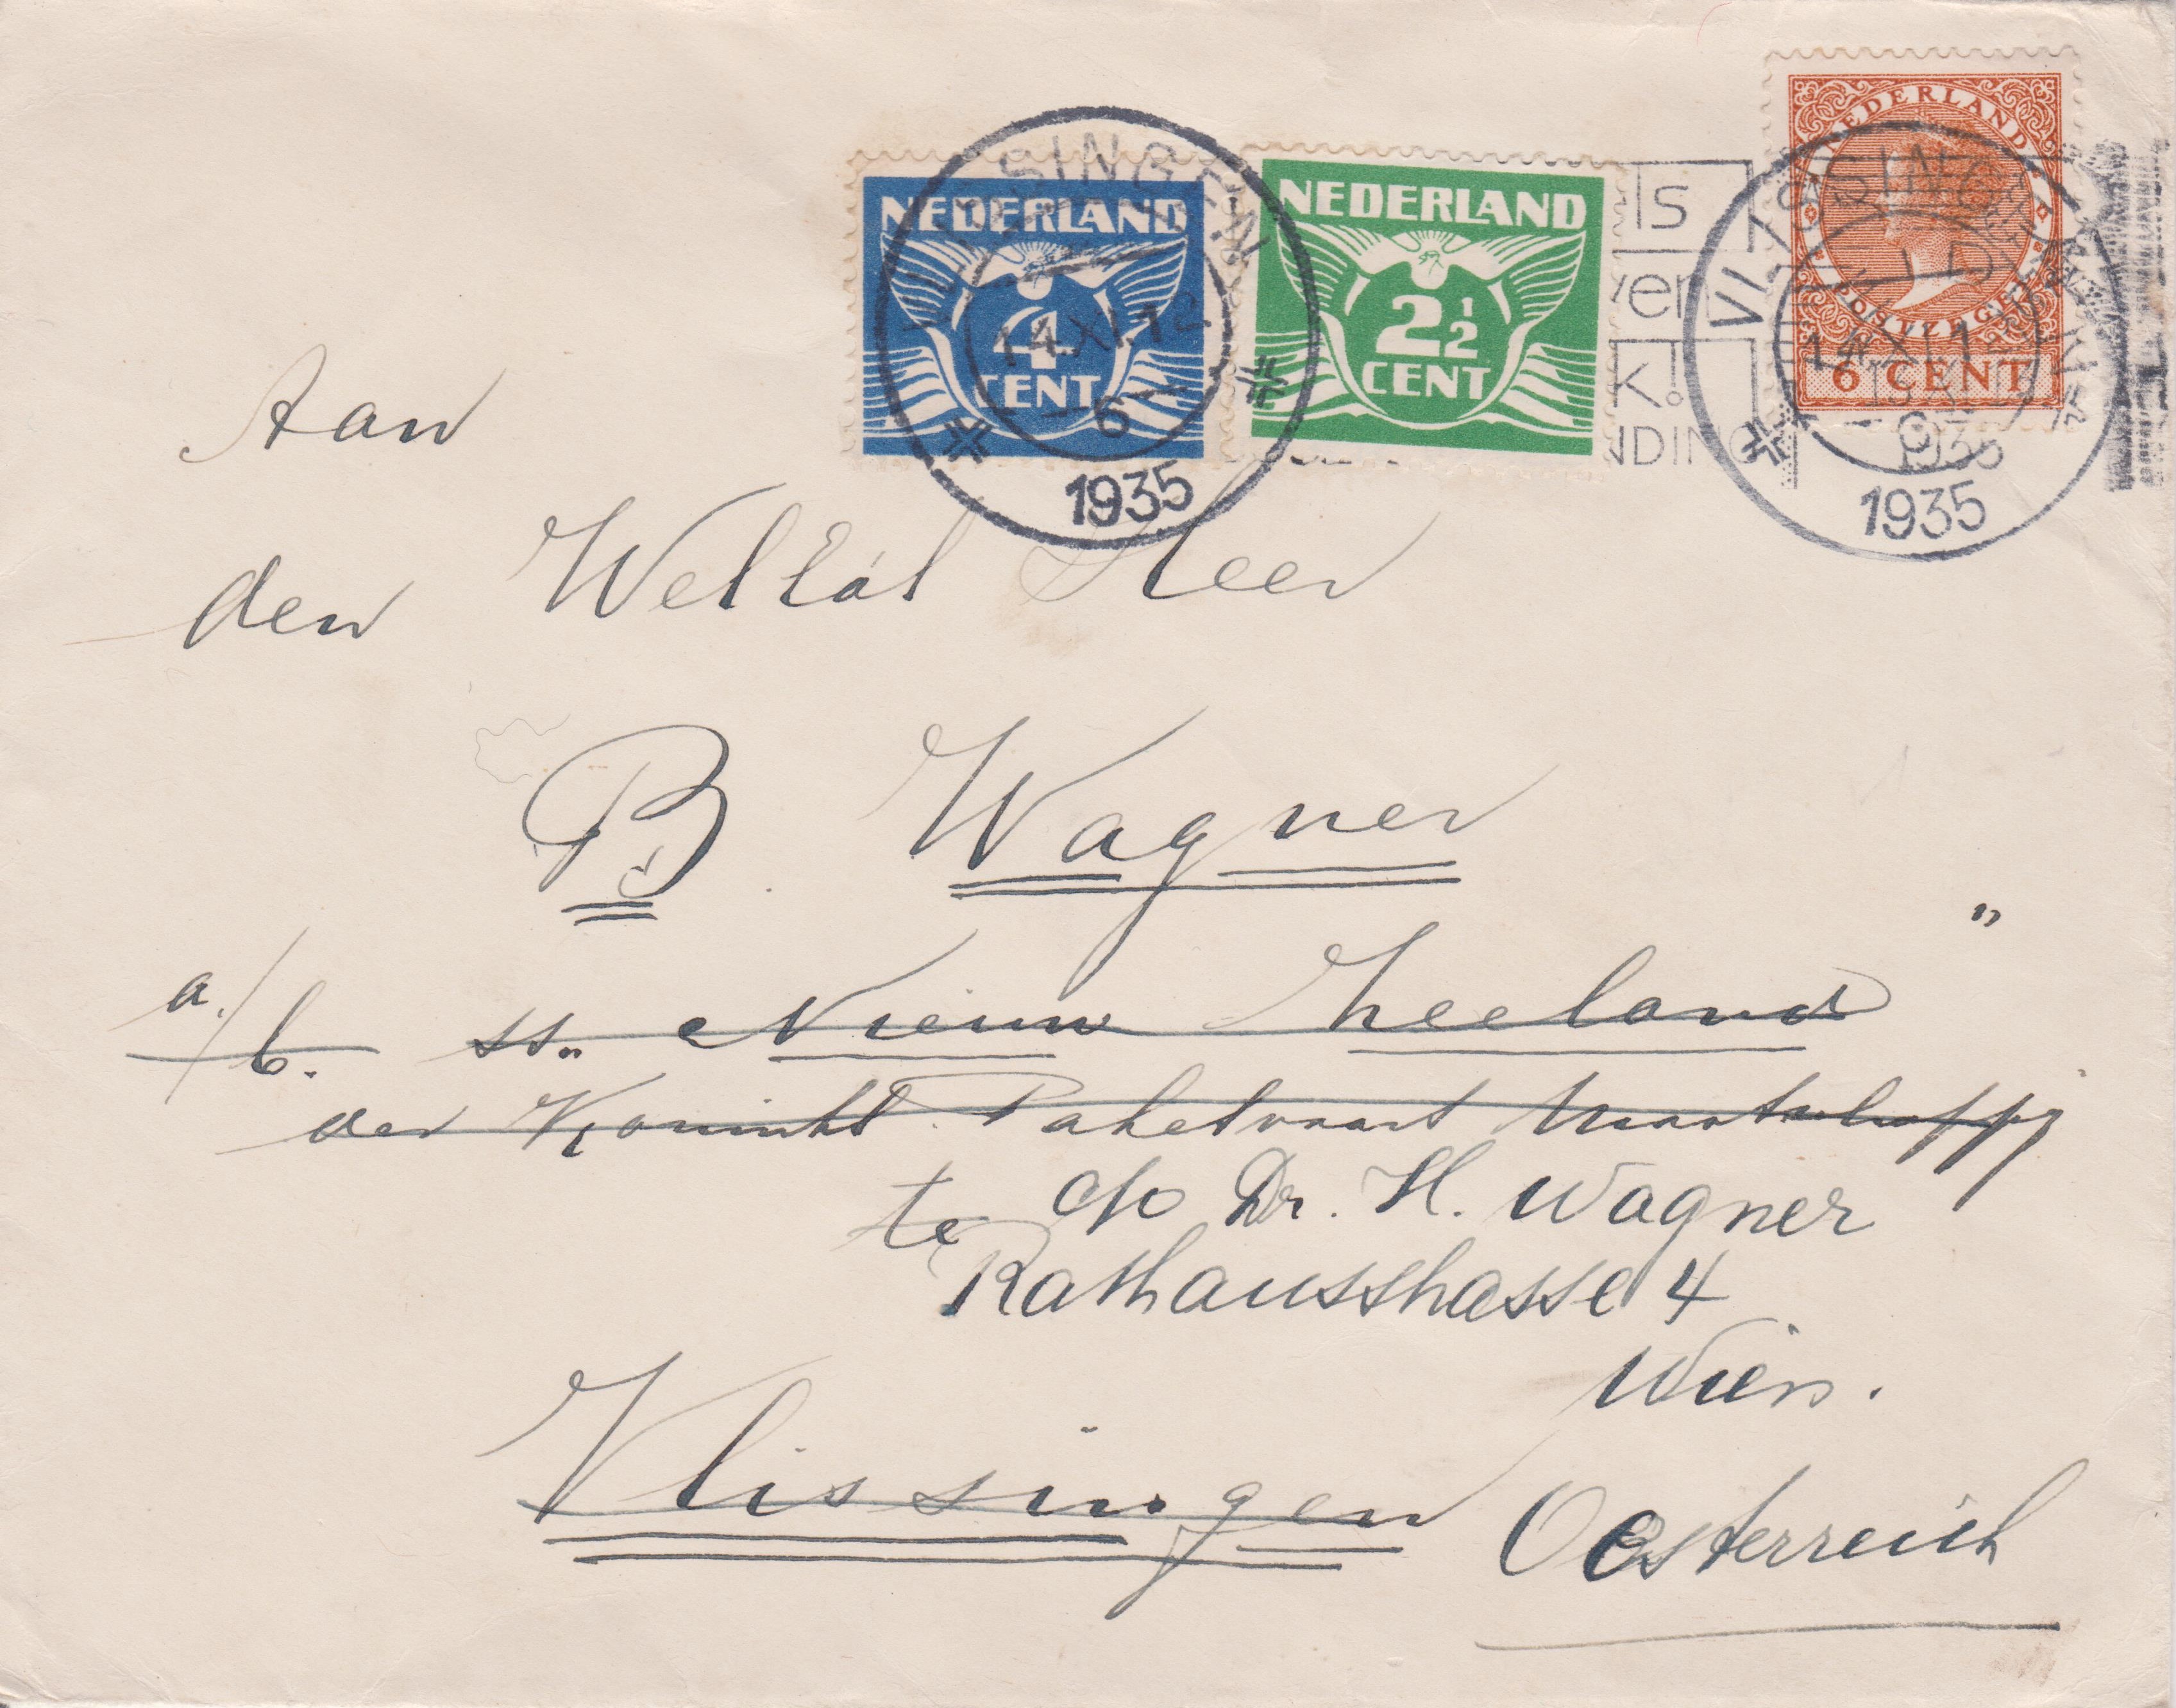 NEDERLAND
4
CENT
VLISSINGEN
14.XI.12
6
1935
NEDERLAND
2½
CENT
ls
ver
k!
NDING
NEDERLAND
POSTZEGEL
6 CENT
VLISSINGEN
14.XI.12
1935
1935
Aan
den WelEd. Heer
B. Wagner
a/b. ss. „Nieuw Zeeland”
der Koninkl. Paketvaart Maatschappij
te c/o Dr. H. Wagner
Rathausstrasse 4
Wien.
Vlissingen
Oesterreich